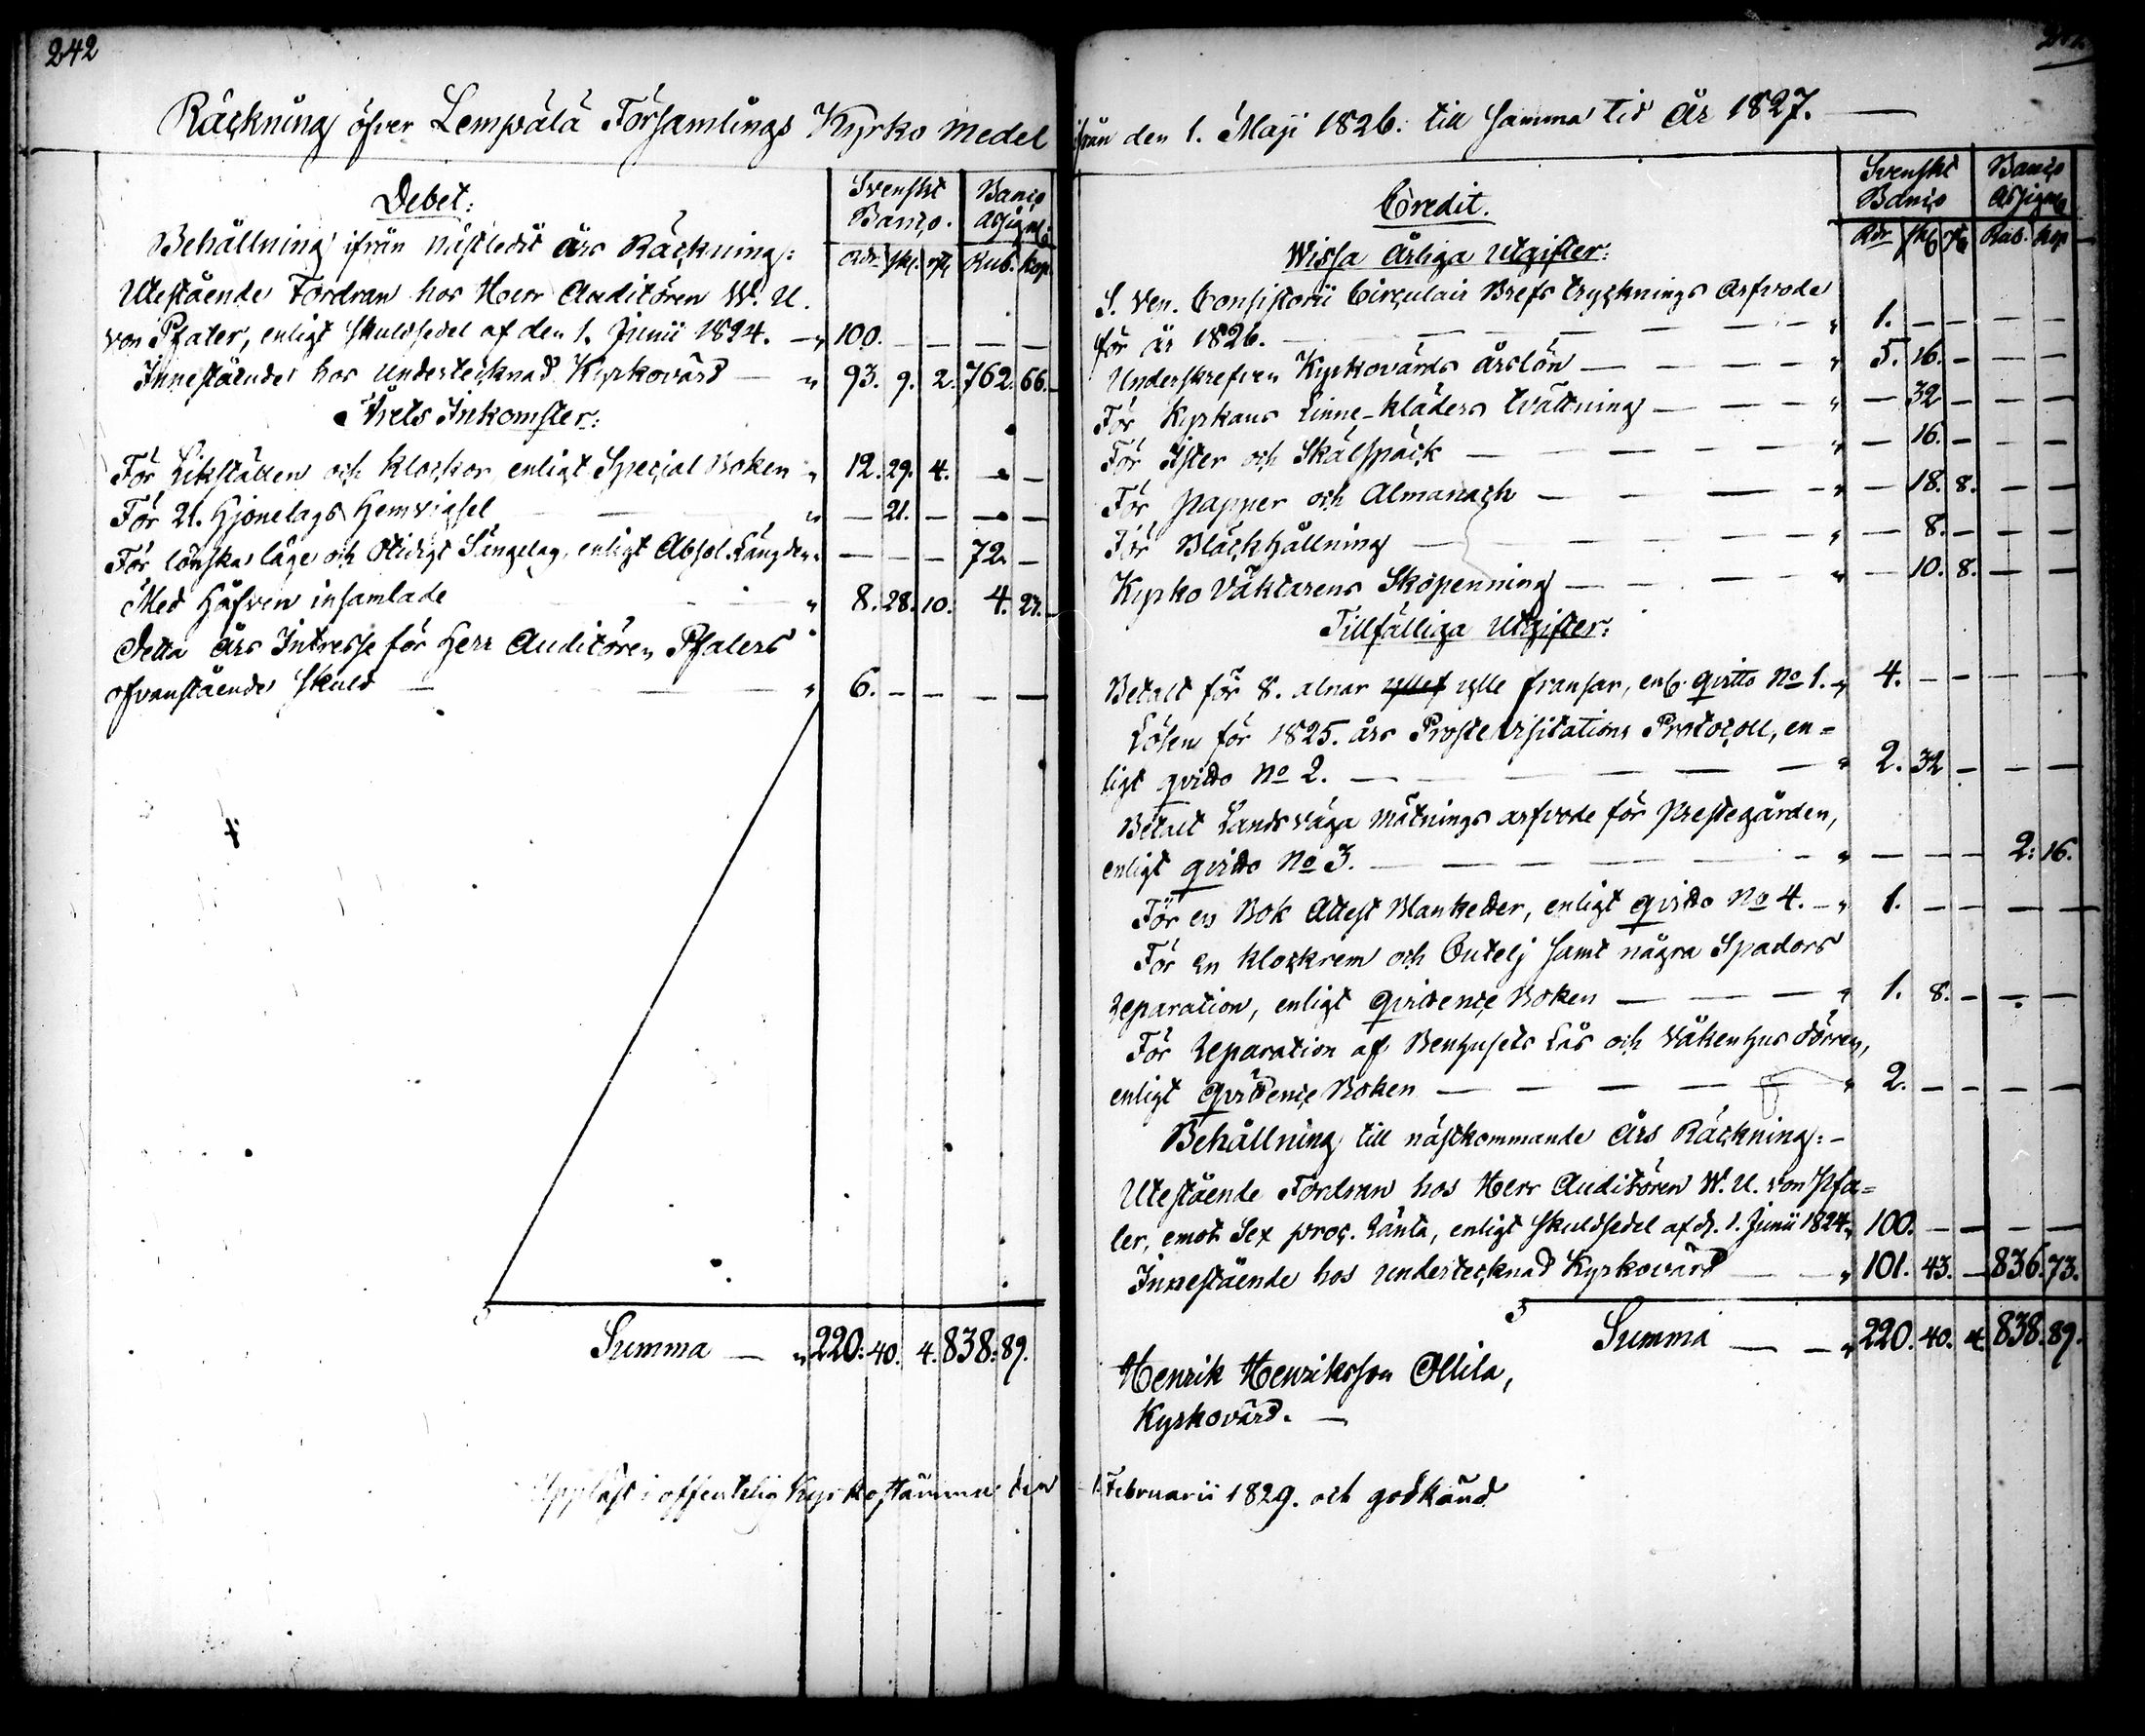 242
Räckning öfver Lempälä Församlings Kyrko Medel ifrån den 1. Maji 1826. till samma tid År 1827.
Debet:
Svenskt Banco. Banco Assigna:
Rdr. skl. rst. Rub. kop.
Behållning ifrån nästledit Års Räckning:
Utestående Fordran hos Herr Auditören W. U.
von Pfaler, enligt skuldsedel af den 1. Junii 1824. — " 100. — — — —
Innestående hos undertecknad Kyrkovärd — " 93. 9. 2. 762. 66.
Årets Inkomster:
För Likställen och klockor enligt Special Boken " 12. 29. 4. — —
För 21. Hjonelags Hemvigsel " — 21. — — —
För lönskaläge och Otidigt Sängelag, enligt Absol. Längden " — — — 72. —
Med Håfven insamlade " 8. 28. 10. 4. 23.
Detta Års Intresse för Herr Auditören Pfalers
ofvanstående skuld — — " 6. — — — —
Summa — " 220. 40. 4. 838. 89.
Credit.
Svenskt Banco Banco Assigna
Rdr skl rst Rub. kop
Wissa Årliga Utgifter:
S. Ven. Consistorii Circulair Brefs trycknings Arfvode
för år 1826. — — — " 1. — — — —
Underskrefven Kyrkovärds årslön — — — " 5. 16. — — —
För Kyrkans Linne-kläders tvättning — — — " — 32 — — —
För Ister och Skälspäck — — — " — 16. — — —
För Papper och Almanach — — — " — 18. 8. — —
För Bläckhållning — — — " — 8. — — —
Kyrko Väktarens Skopenning — — — " — 10. 8. — —
Tillfälliga Utgifter:
Betalt för 8. alnar ylle fransar, enl. qvitto No 1. " 4. — — — —
Lösen för 1825. års Proste Visitations Protocoll, en=
ligt qvitto No 2. — — — " 2. 32 — — —
Betalt Landsväga Mätnings arfvode för Prestegården,
enligt qvitto No 3. — — — " — — — 2. 16.
För en Bok Attest Blanketter, enligt qvitto No 4. — " 1. — — — —
För en klockrem och Butelj samt några Spadors
reparation, enligt qvittence Boken — — — " 1. 8. — — —
För reparation af Benhusets Lås och Våkenhus dörren,
enligt qvittence Boken — — — " 2. — — — —
Behållning till nästkommande Års Räckning: —
Utestående Fordran hos Herr Auditören W. U. von Pfa=
ler, emot Sex proc. Ränta, enligt skuldsedel af d. 1. Junii 1824. " 100. — — — —
Innestående hos undertecknad Kyrkovärd — " 101. 43. — 836. 73.
Summa — — " 220. 40. 4. 838. 89.
Henrik Henriksson Ollila,
Kyrkovärd. —
Uppläst i offentelig Kyrkostämma den 1 Februarii 1829. och godkänd